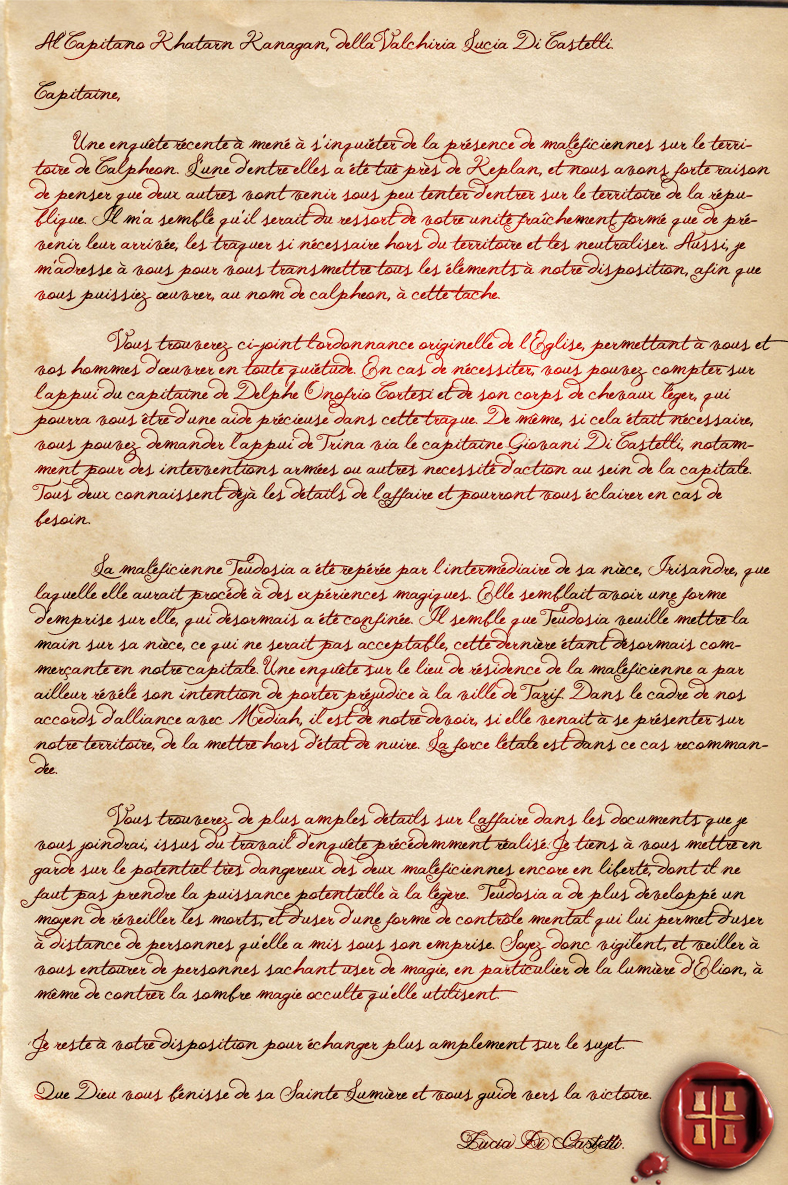 Al Capitano Khatarn Kanagan, della Valchiria Lucia Di Castelli.
Capitaine,
Une enquête récente à mené à s'inquiéter de la présence de maléficiennes sur le terri-
toire de Calpheon. L'une d'entre elles a été tué près de Keplan, et nous avons forte raison
de penser que deux autres vont venir sous peu tenter d'entrer sur le territoire de la répu-
blique. Il m'a semblé qu'il serait du ressort de votre unité fraîchement formé que de pré-
venir leur arrivée, les traquer si nécessaire hors du territoire et les neutraliser. Aussi, je
m'adresse à vous pour vous transmettre tous les éléments à notre disposition, afin que
vous puissiez œuvrer, au nom de calpheon, à cette tache.
Vous trouverez ci-joint l'ordonnance originelle de l'Église, permettant à vous et
vos hommes d'œuvrer en toute quiétude. En cas de nécessiter, vous pouvez compter sur
l'appui du capitaine de Delphe Onofrio Cortesi et de son corps de chevaux léger, qui
pourra vous être d'une aide précieuse dans cette traque. De même, si cela était nécessaire,
vous pouvez demander l'appui de Trina via le capitaine Giovani Di Castelli, notam-
ment pour des interventions armées ou autres necessité d'action au sein de la capitale.
Tous deux connaissent déjà les détails de l'affaire et pourront vous éclairer en cas de
besoin.
La maléficienne Teudosia a été repérée par l'intermédiaire de sa nièce, Irisandre, que
laquelle elle aurait procédé à des expériences magiques. Elle semblait avoir une forme
d'emprise sur elle, qui désormais a été confinée. Il semble que Teudosia veuille mettre la
main sur sa nièce, ce qui ne serait pas acceptable, cette dernière étant désormais com-
merçante en notre capitale. Une enquête sur le lieu de résidence de la maléficienne a par
ailleur révélé son intention de porter préjudice à la ville de Tarif. Dans le cadre de nos
accords d'alliance avec Médiah, il est de notre devoir, si elle venait à se présenter sur
notre territoire, de la mettre hors d'état de nuire. La force létale est dans ce cas recomman-
dée.
Vous trouverez de plus amples détails sur l'affaire dans les documents que je
vous joindrai, issus du travail d'enquête précédemment réalisé. Je tiens à vous mettre en
garde sur le potentiel très dangereux des deux maléficiennes encore en liberté, dont il ne
faut pas prendre la puissance potentielle à la légère. Teudosia a de plus développé un
moyen de réveiller les morts, et d'user d'une forme de contrôle mental qui lui permet d'user
à distance de personnes qu'elle a mis sous son emprise. Soyez donc vigilent, et veiller à
vous entourer de personnes sachant user de magie, en particulier de la lumière d'Elion, à
même de contrer la sombre magie occulte qu'elle utilisent.
Je reste à votre disposition pour échanger plus amplement sur le sujet.
Que Dieu vous bénisse de sa Sainte Lumière et vous guide vers la victoire.
Lucia Di Castelli.